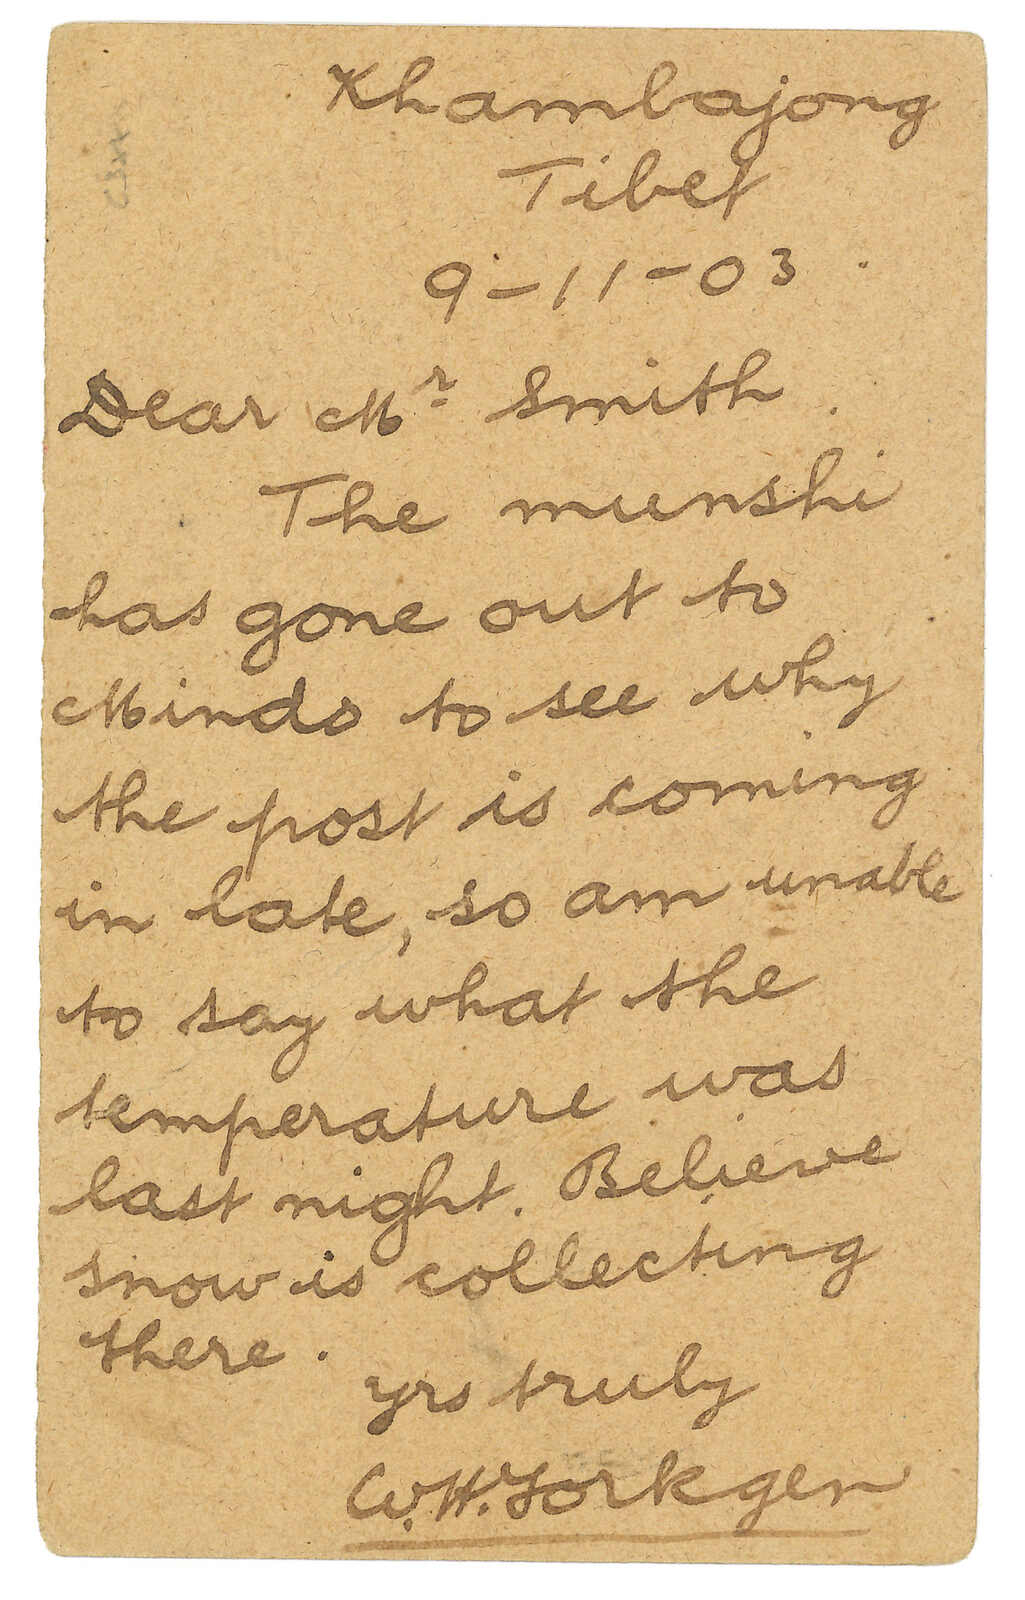 Khambajong
Tibet
9-11-03
Dear Mr Smith.
The munshi
has gone out to
Mindo to see why
the post is coming
in late, so am unable
to say what the
temperature was
last night. Believe
snow is collecting
there.
yrs truly
W.H.